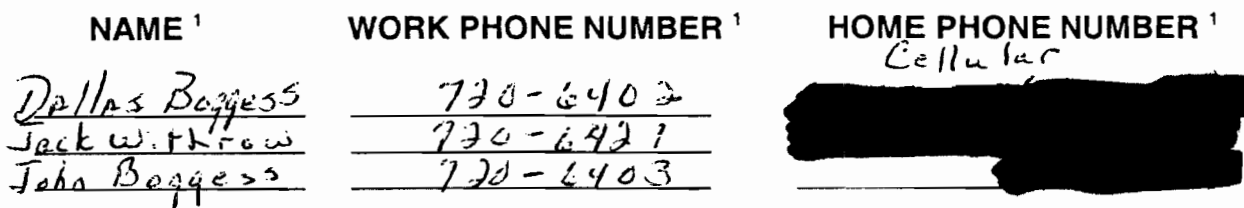 NAME ¹ WORK PHONE NUMBER ¹ HOME PHONE NUMBER ¹
Cellular
Dallas Boggess 720-6402
Jack Withrow 720-6421
John Boggess 720-6403